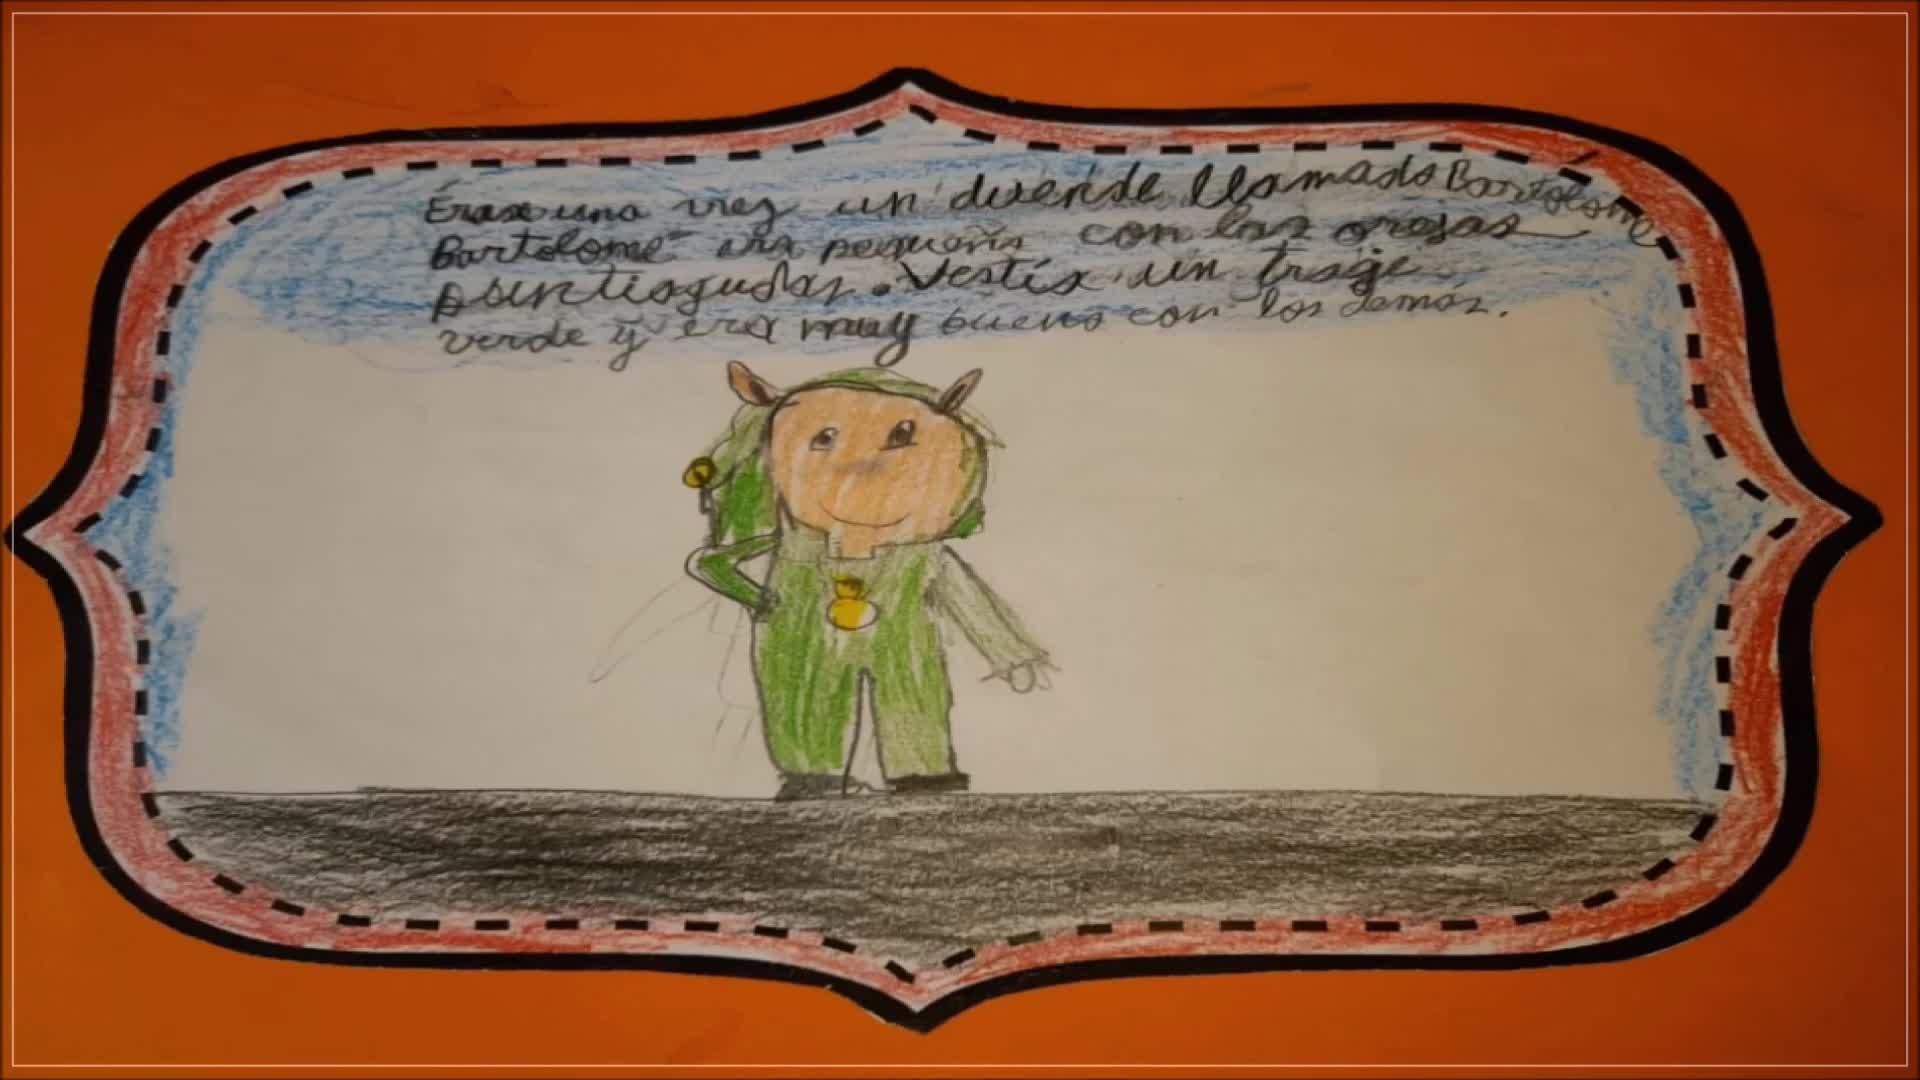 Érase una vez un duende llamado Bartolomé
Bartolomé era pequeño con las orejas
puntiagudas. Vestía un traje
verde y era muy bueno con los demás.